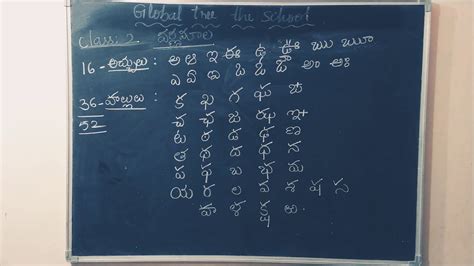 Global tree the school
Class: 2. వర్ణమాల
16 - అచ్చులు: అ ఆ ఇ ఈ ఉ ఊ ఋ ౠ
ఎ ఏ ఐ ఒ ఓ ఔ అం అః
36 - హల్లులు: క ఖ గ ఘ ఙ
52 చ ఛ జ ఝ ఞ
ట ఠ డ ఢ ణ
త థ ద ధ న
ప ఫ బ భ మ
య ర ల వ శ ష స
హ ళ క్ష ఱ.